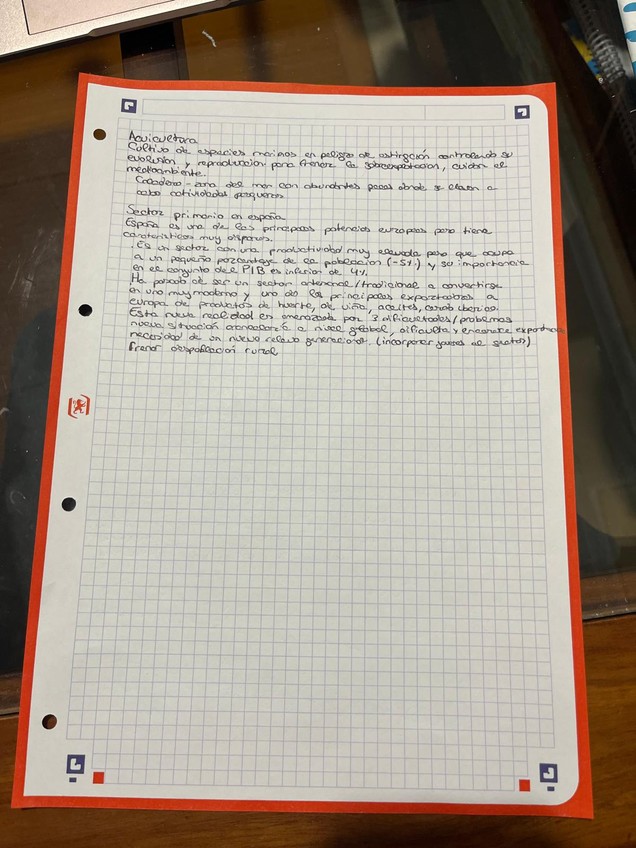 Acuicultura
Cultivo de especies marinas en peligro de extinción controlando su
evolución y reproducción para frenar la sobreexplotación, cuidar el
medioambiente.
Caladero - zona del mar con abundantes peces donde se llevan a
cabo actividades pesqueras
Sector primario en españa
España es una de las principales potencias europeas pero tiene
características muy dispares.
. Es un sector con una productividad muy elevada pero que ocupa
a un pequeño porcentaje de la población (-5%) y su importancia
en el conjunto del PIB es inferior de 4%.
. Ha pasado de ser un sector artesanal/tradicional a convertirse
en uno muy moderno y uno de los principales exportadores a
europa de productos de huerta, de viña, aceites, cerdo iberico.
Esta nueva realidad es amenazada por 3 dificultades/problemas
nueva situación económica a nivel global, dificulta y encarece exportar
necesidad de un nuevo relevo generacional (incorporar jovenes al sector)
Frenar despoblación rural